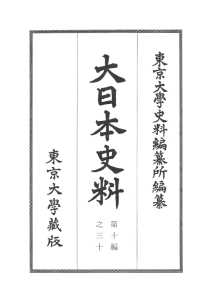 東京大學史料編纂所編纂
大日本史料
第十編
之三十
東京大學藏版